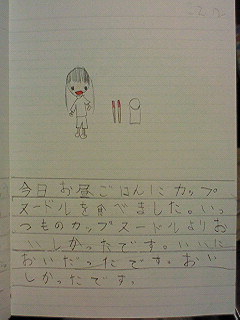 今日お昼ごはんにカップ
ヌードルを食べました。いっ
つものカップヌードルよりお
いしかったです。いいに
おいだったです。おい
しかったです。